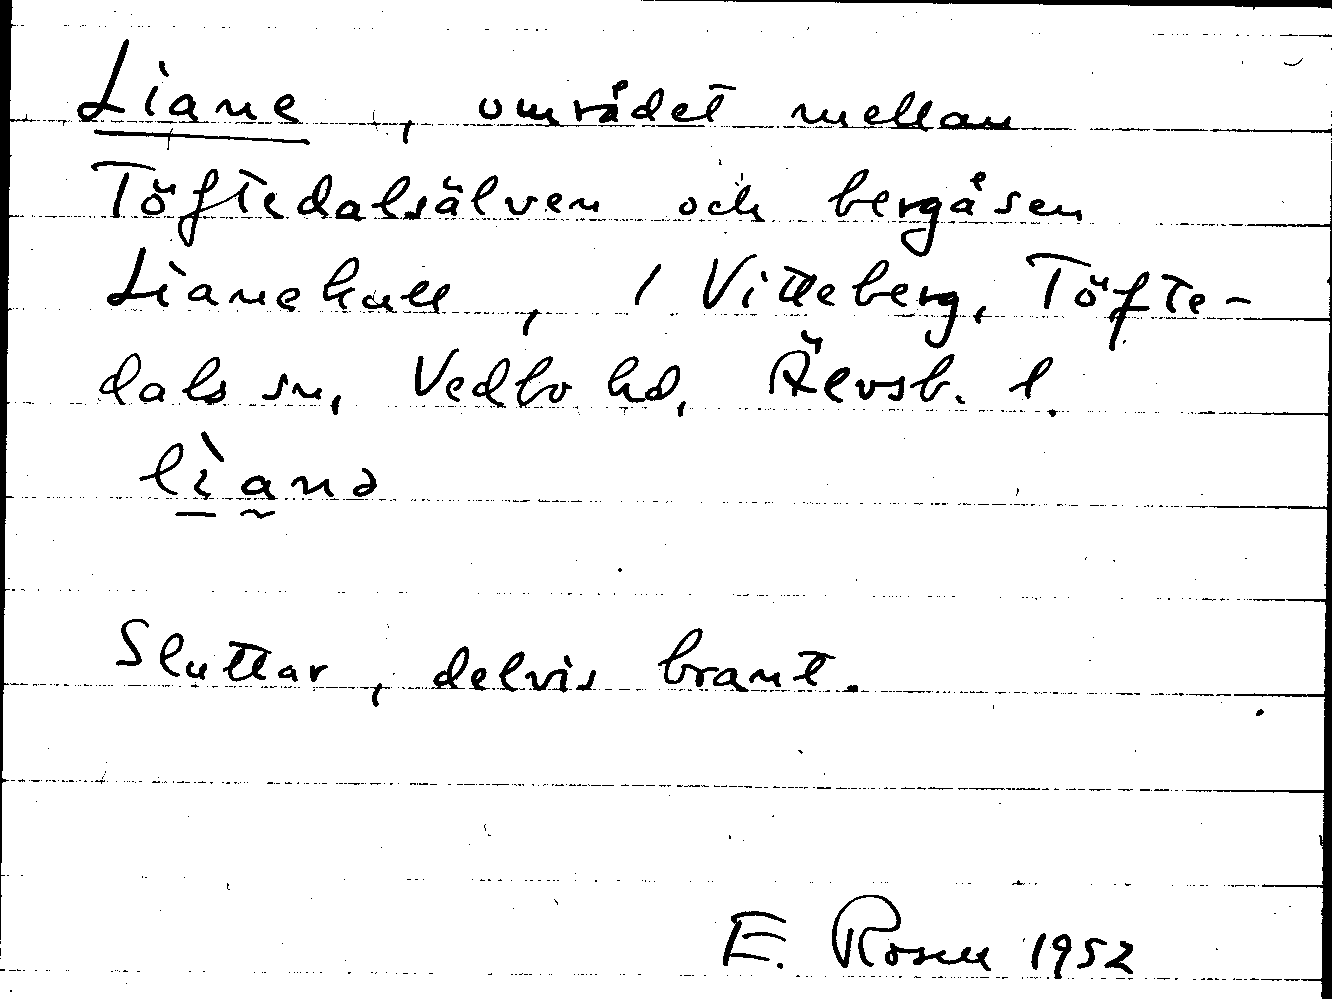 Liane, området mellan
Töftedalsälven och bergåsen
Lianekull, 1 Vitteberg, Töfte-
dals sn, Vedbo hd, Älvsb. l.
lìanə
Sluttar, delvis brant.
E. Rosell 1952